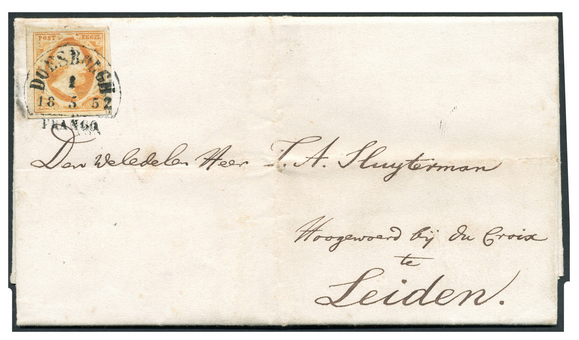 POST ZEGEL
DOESBORGH
1
18 5 52
FRANCO
Den weledelen Heer T. A. Sluyterman
Hoogewoerd bij du Croix
te
Leiden.